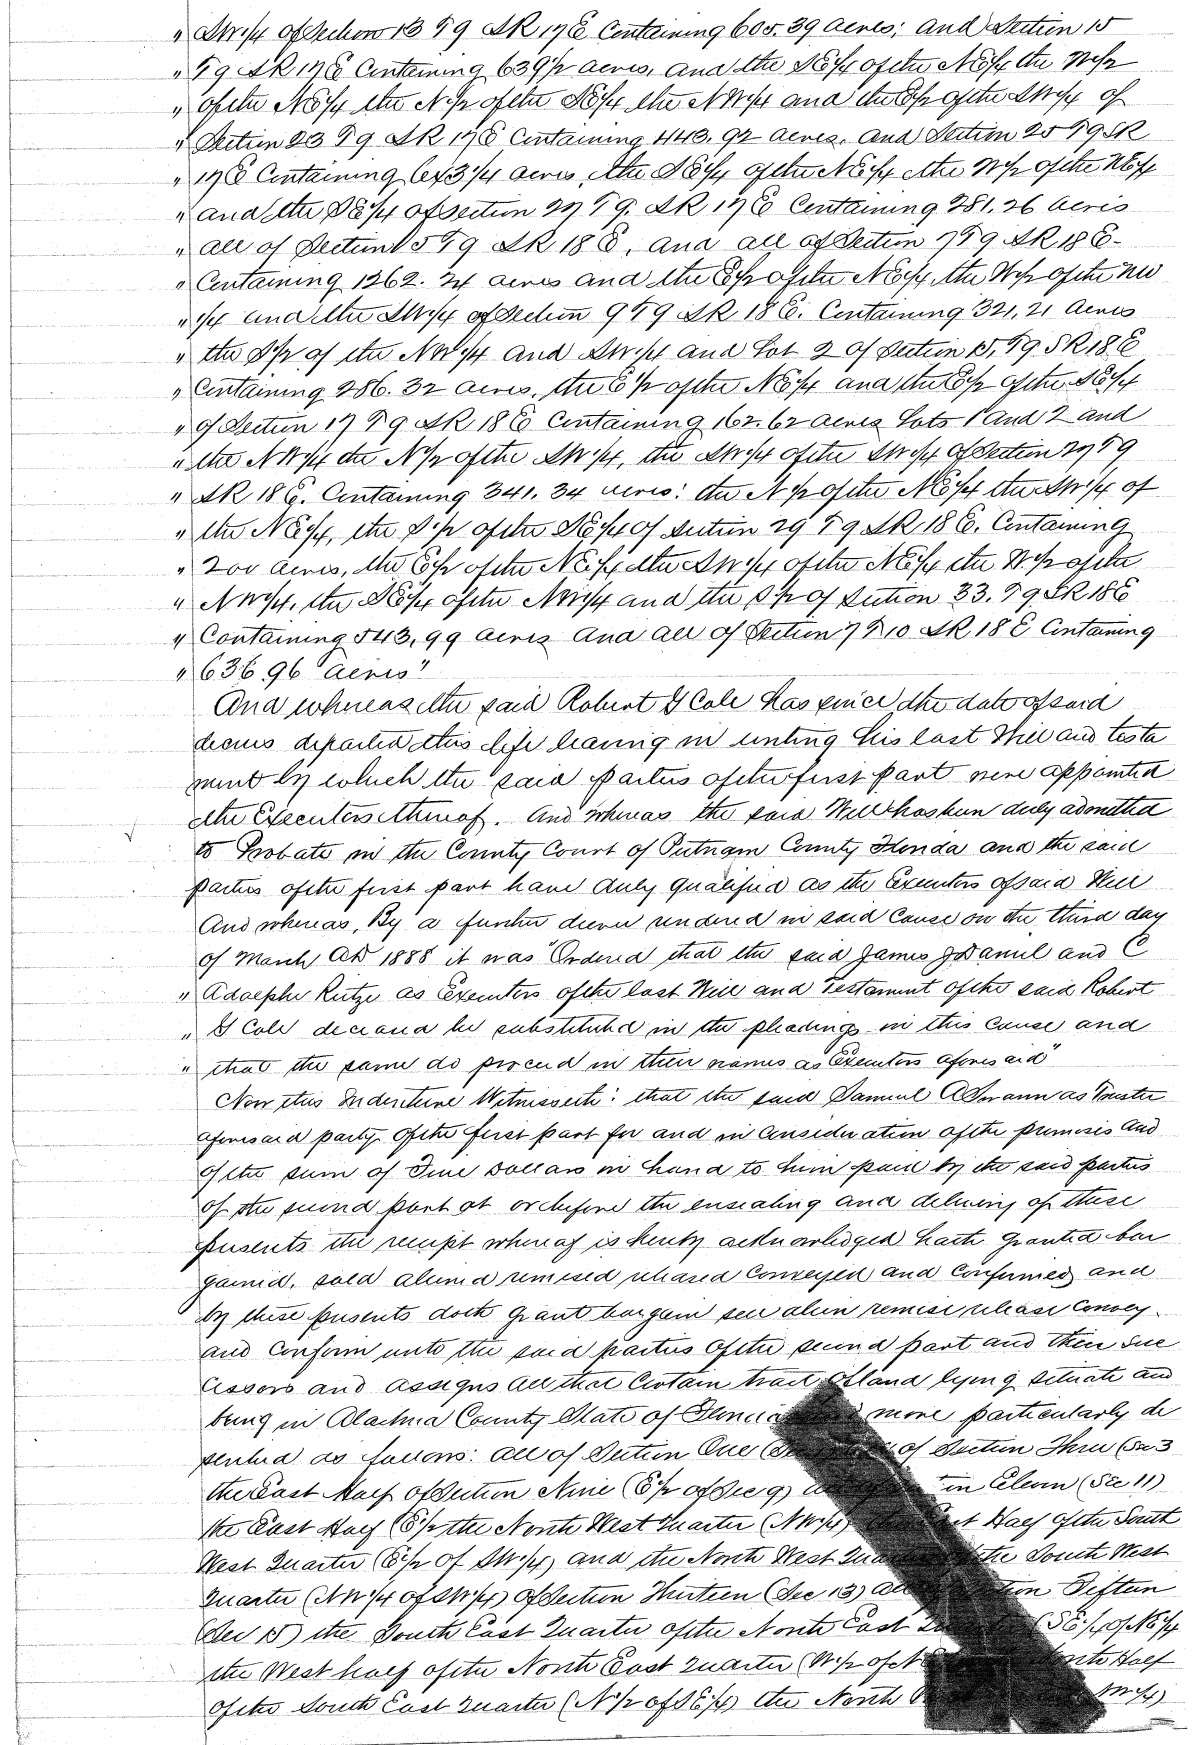 " SW 1/4 of Section 13 T 9 S R 17 E Containing 605.39 acres; and Section 15
" T 9 S R 17 E Containing 639 1/2 acres, and the SE 1/4 of the NE 1/4 the W 1/2
" of the NE 1/4 the N 1/2 of the SE 1/4, the NW 1/4 and the E 1/2 of the SW 1/4 of
" Section 23 T 9 S R 17 E Containing 443.92 acres, and Section 25 T 9 S R
" 17 E Containing 643 1/4 acres, the SE 1/4 of the NE 1/4 the W 1/2 of the NE 1/4
" and the SE 1/4 of section 27 T 9. S R 17 E Containing 281.26 acres
" all of Section 5 T 9 S R 18 E, and all of Section 7 T 9 S R 18 E-
" Containing 1262.24 acres and the E 1/2 of the NE 1/4, the W 1/2 of the NW
" 1/4 and the SW 1/4 of Section 9 T 9 S R 18 E. Containing 321,21 acres
" the S 1/2 of the NW 1/4 and SW 1/4 and Lot 2 of Section 15, T 9 S R 18 E
" Containing 286.32 acres, the E 1/2 of the NE 1/4 and the E 1/2 of the SE 1/4
" of Section 17 T 9 S R 18 E Containing 162.62 acres Lots 1 and 2 and
" the NW 1/4 the N 1/2 of the SW 1/4, the SW 1/4 of the SW 1/4 of Section 27 T 9
" S R 18 E. Containing 341.34 acres: the N 1/2 of the NE 1/4 the SW 1/4 of
" the NE 1/4, the S 1/2 of the SE 1/4 of Section 29 T 9 S R 18 E. Containing
" 200 acres, the E 1/2 of the NE 1/4 the SW 1/4 of the NE 1/4 the W 1/2 of the
" NW 1/4, the SE 1/4 of the NW 1/4 and the S 1/2 of Section 33. T 9 S R 18 E
" Containing 543,99 acres and all of Section 7 T 10 S R 18 E Containing
" 636.96 acres"
And whereas the said Robert G Cole has since the date of said
decrees departed this life leaving in writing his last Will and testa
ment by which the said parties of the first part were appointed
the Executors thereof. And whereas the said Will has been duly admitted
to Probate in the County Court of Putnam County Florida and the said
parties of the first part have duly qualified as the Executors of said Will
And whereas, By a further decree rendered in said Cause on the third day
of March AD 1888 it was "Ordered that the said James J Daniel and C
" Adolphe Rutze as Executors of the last Will and Testament of the said Robert
" G Cole deceased be substituted in the pleadings in this Cause and
" that the same do proceed in their names as Executors aforesaid"
Now this Indenture Witnesseth: that the said Samuel A Swann as Trustee
aforesaid party of the first part for and in consideration of the premises and
of the sum of Five Dollars in hand to him paid by the said parties
of the second part at or before the ensealing and delivery of these
presents the receipt whereof is hereby acknowledged hath granted bar
gained, sold aliened remised released Conveyed and Confirmed and
by these presents doth grant bargain sell alien remise release Convey
and Confirm unto the said parties of the second part and their suc
cessors and assigns all that Certain tract of land lying situate and
being in Alachua County State of Florida more particularly de
scribed as follows: all of Section One of Section Three (Sec 3
the East Half of Section Nine (E 1/2 of Sec 9) Eleven (Sec 11)
the East Half (E 1/2 the North West Quarter (NW 1/4) Half of the South
West Quarter (E 1/2 of SW 1/4) and the North West Quarter the South West
Quarter (NW 1/4 of SW 1/4) of Section Thirteen (Sec 13) all Fifteen
(Sec 15) the South East Quarter of the North East (SE 1/4 of NE 1/4
the West half of the North East Quarter (W 1/2 of Half
of the South East Quarter (N 1/2 of SE 1/4) the North W 1/4)